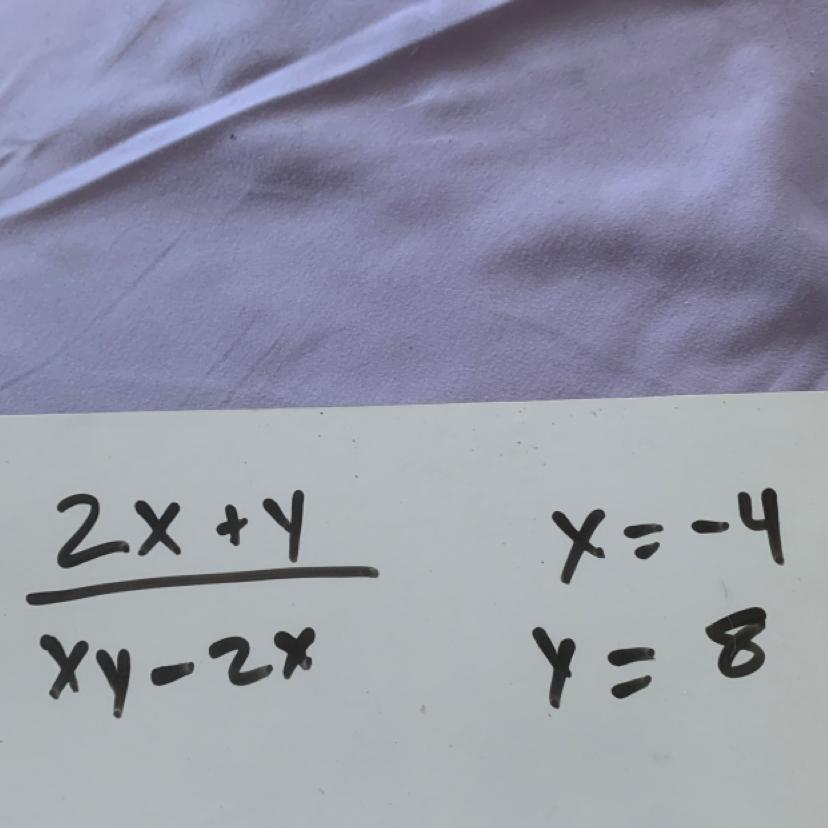 2x + y x = -4
xy - 2x y = 8